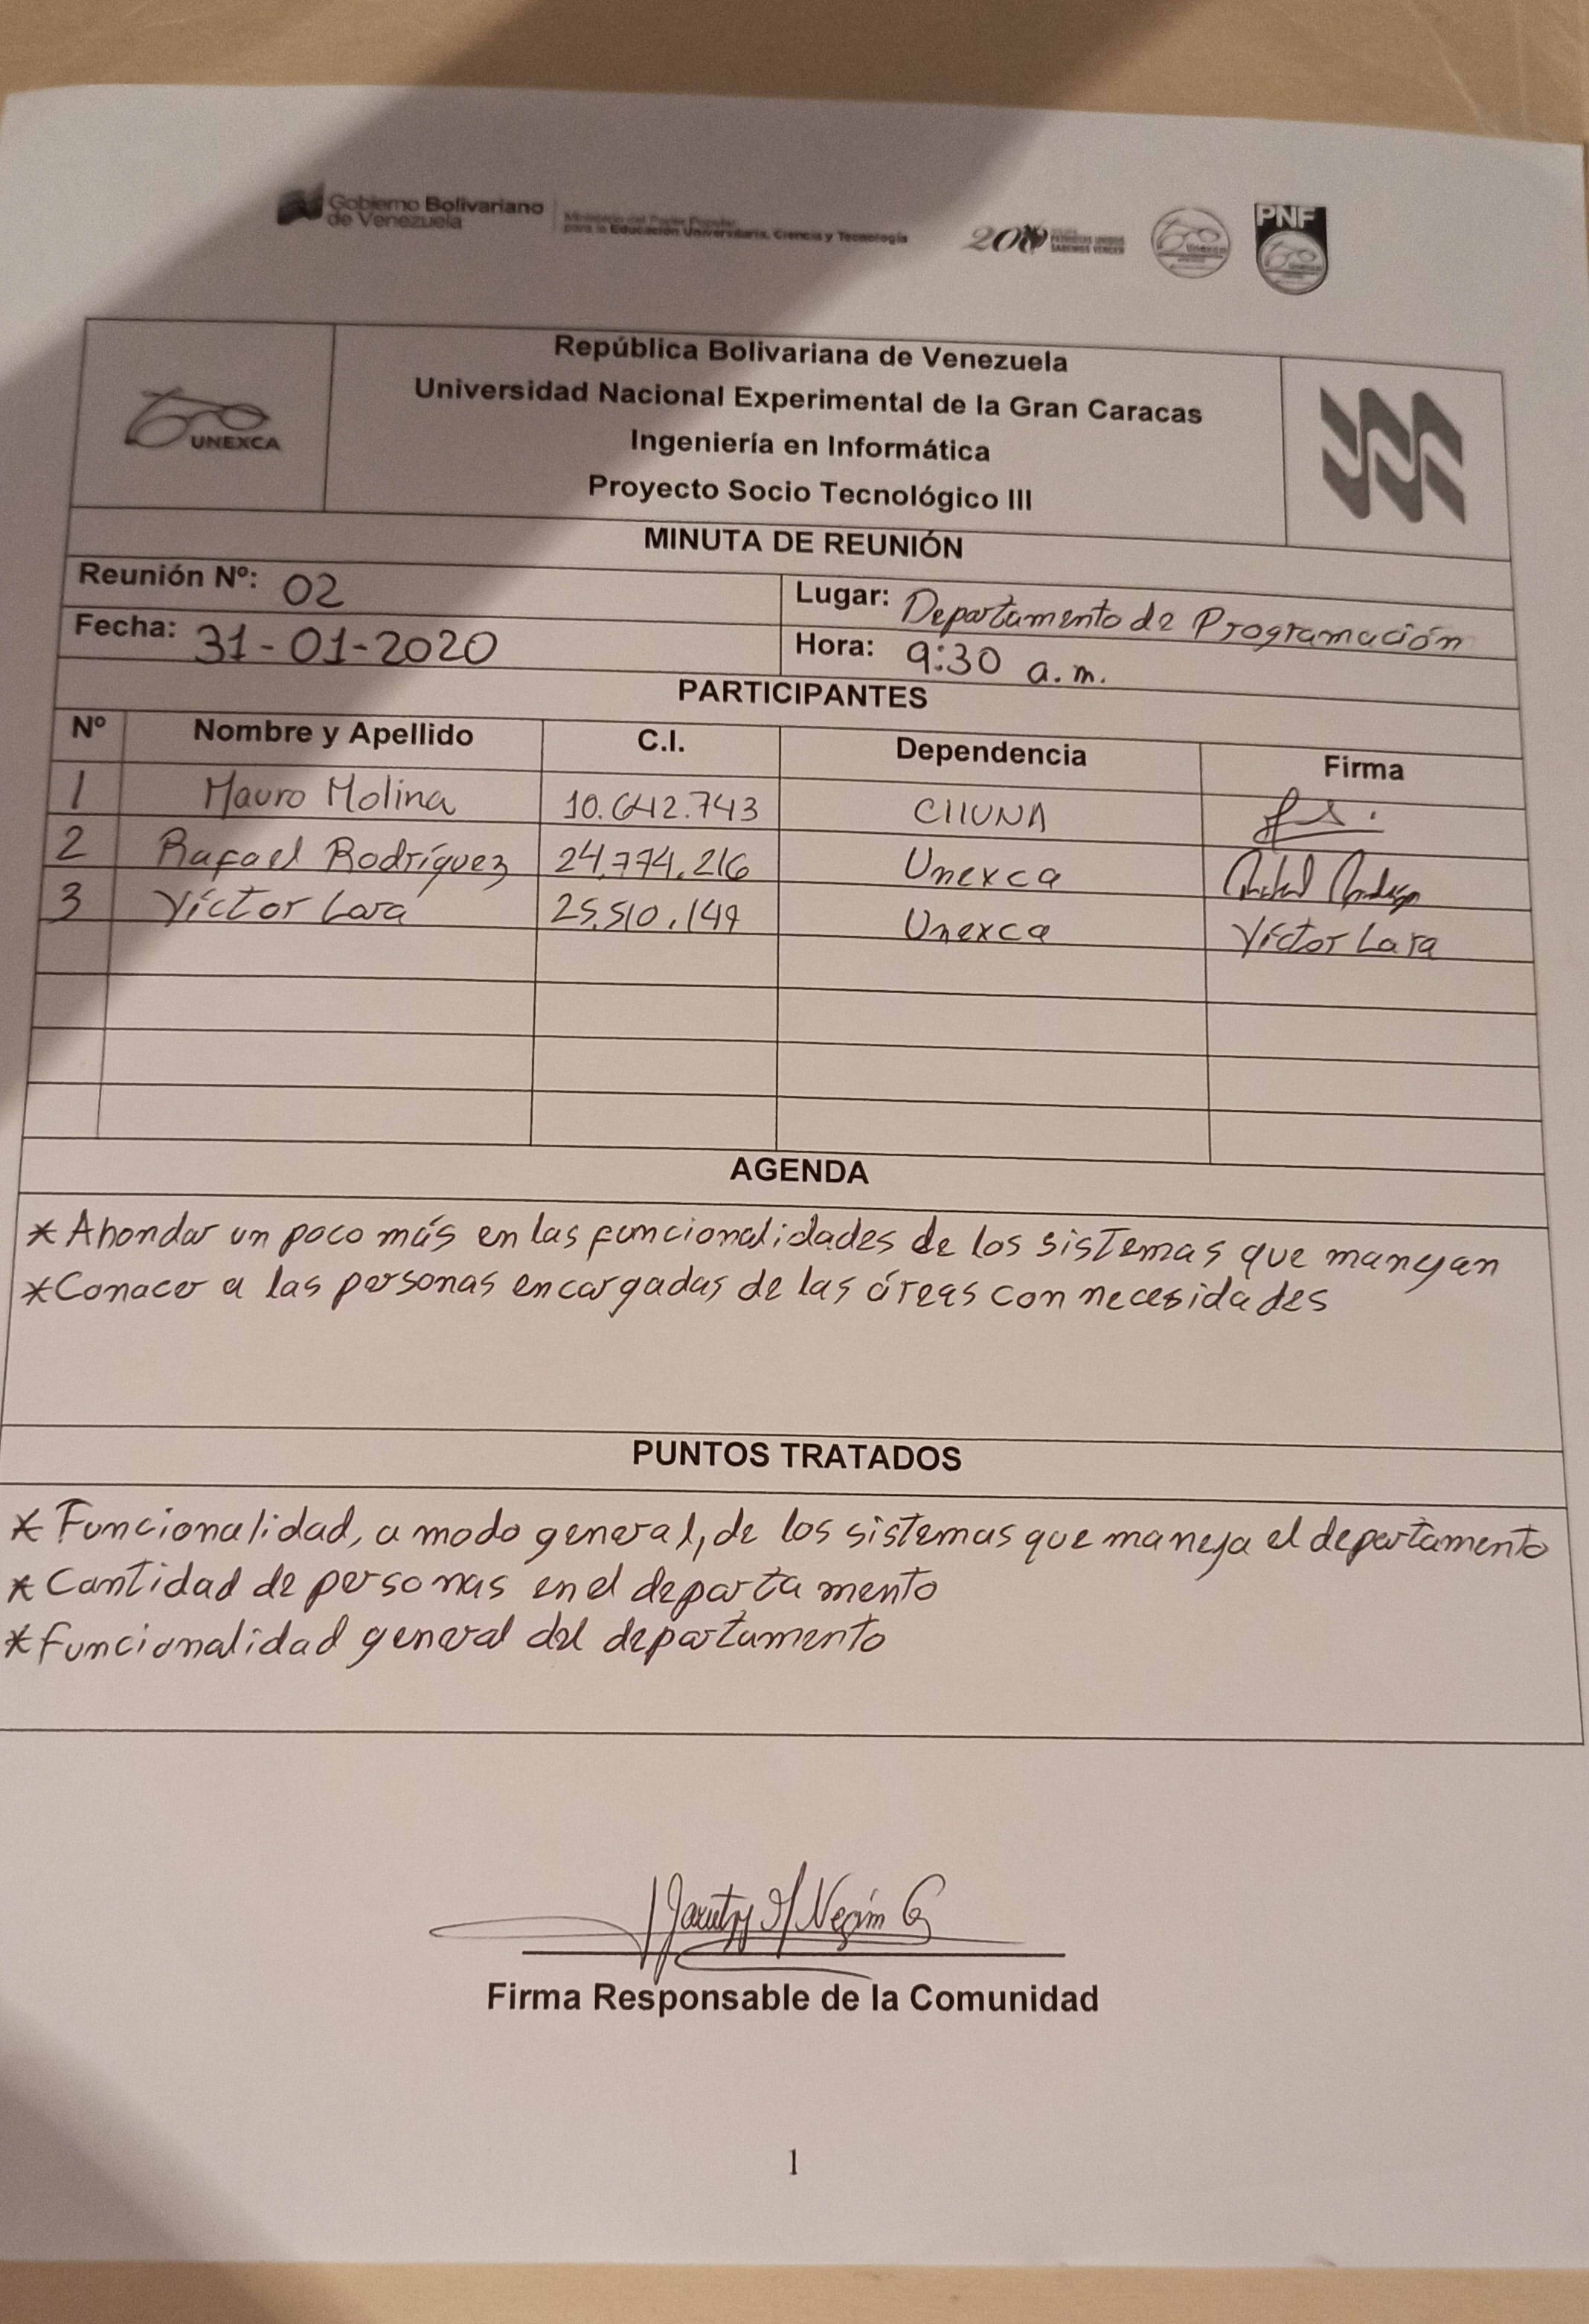 Gobierno Bolivariano
de Venezuela
Ministerio del Poder Popular
para la Educación Universitaria, Ciencia y Tecnología
200
PNF
UNEXCA
República Bolivariana de Venezuela
Universidad Nacional Experimental de la Gran Caracas
Ingeniería en Informática
Proyecto Socio Tecnológico III
MINUTA DE REUNIÓN
Reunión Nº: 02
Lugar: Departamento de Programación
Fecha: 31-01-2020
Hora: 9:30 a.m.
PARTICIPANTES
Nº Nombre y Apellido C.I. Dependencia Firma
1 Mauro Molina 10.642.743 CIIUNA
2 Rafael Rodríguez 24.774.216 Unexca
3 Víctor Lara 25.510.149 Unexca Víctor Lara
AGENDA
* Ahondar un poco más en las funcionalidades de los sistemas que manejan
* Conocer a las personas encargadas de las áreas con necesidades
PUNTOS TRATADOS
* Funcionalidad, a modo general, de los sistemas que maneja el departamento
* Cantidad de personas en el departamento
* funcionalidad general del departamento
Firma Responsable de la Comunidad
1